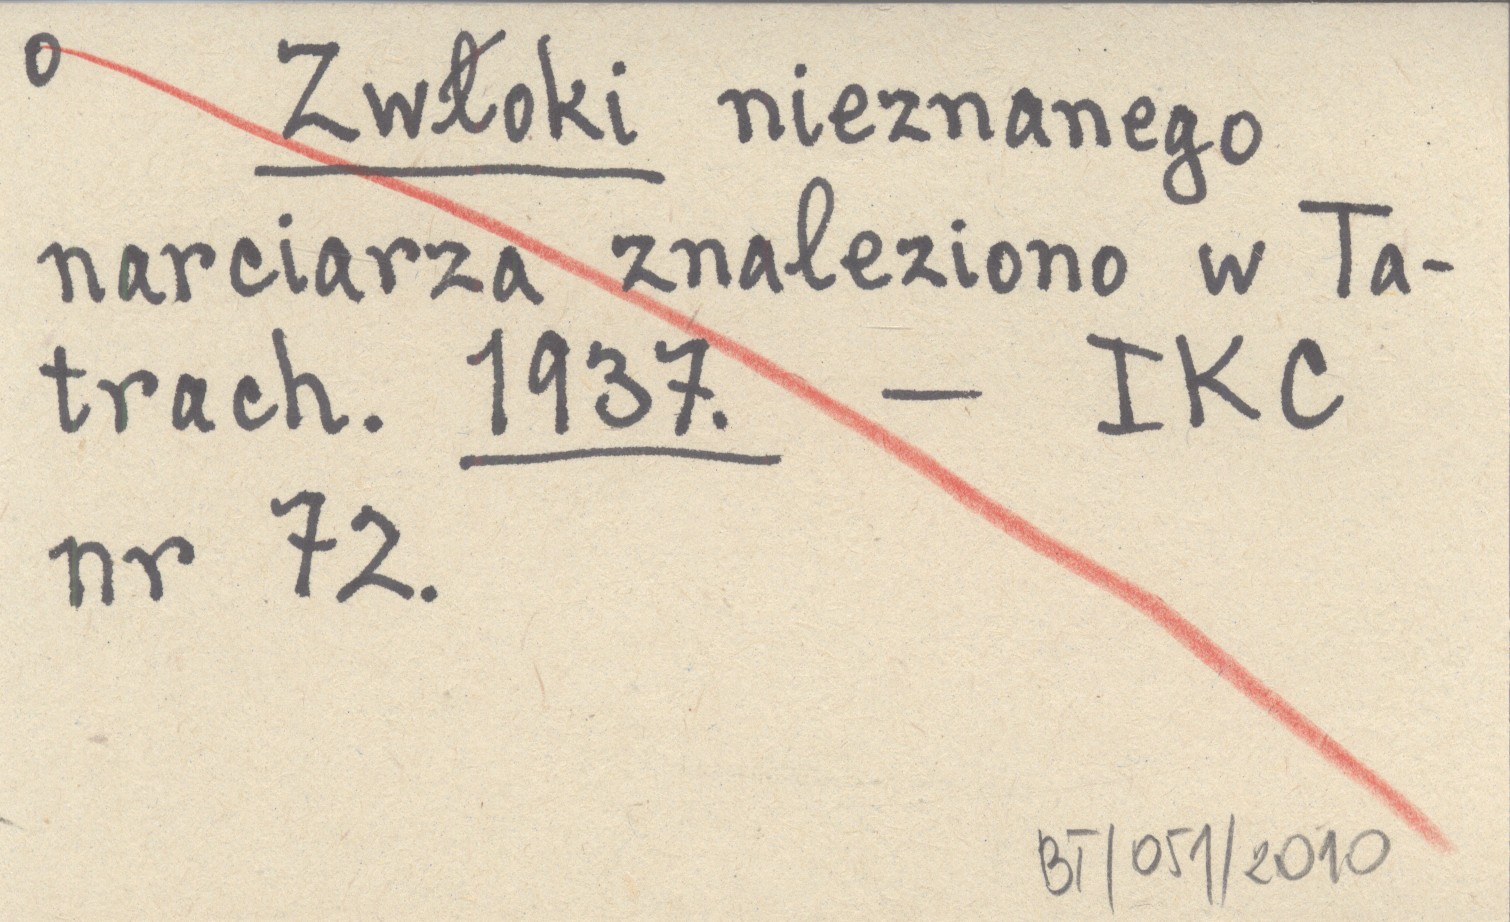 o Zwłoki nieznanego
narciarza znaleziono w Ta-
trach. 1937. — IKC
nr 72.
BT/051/2010